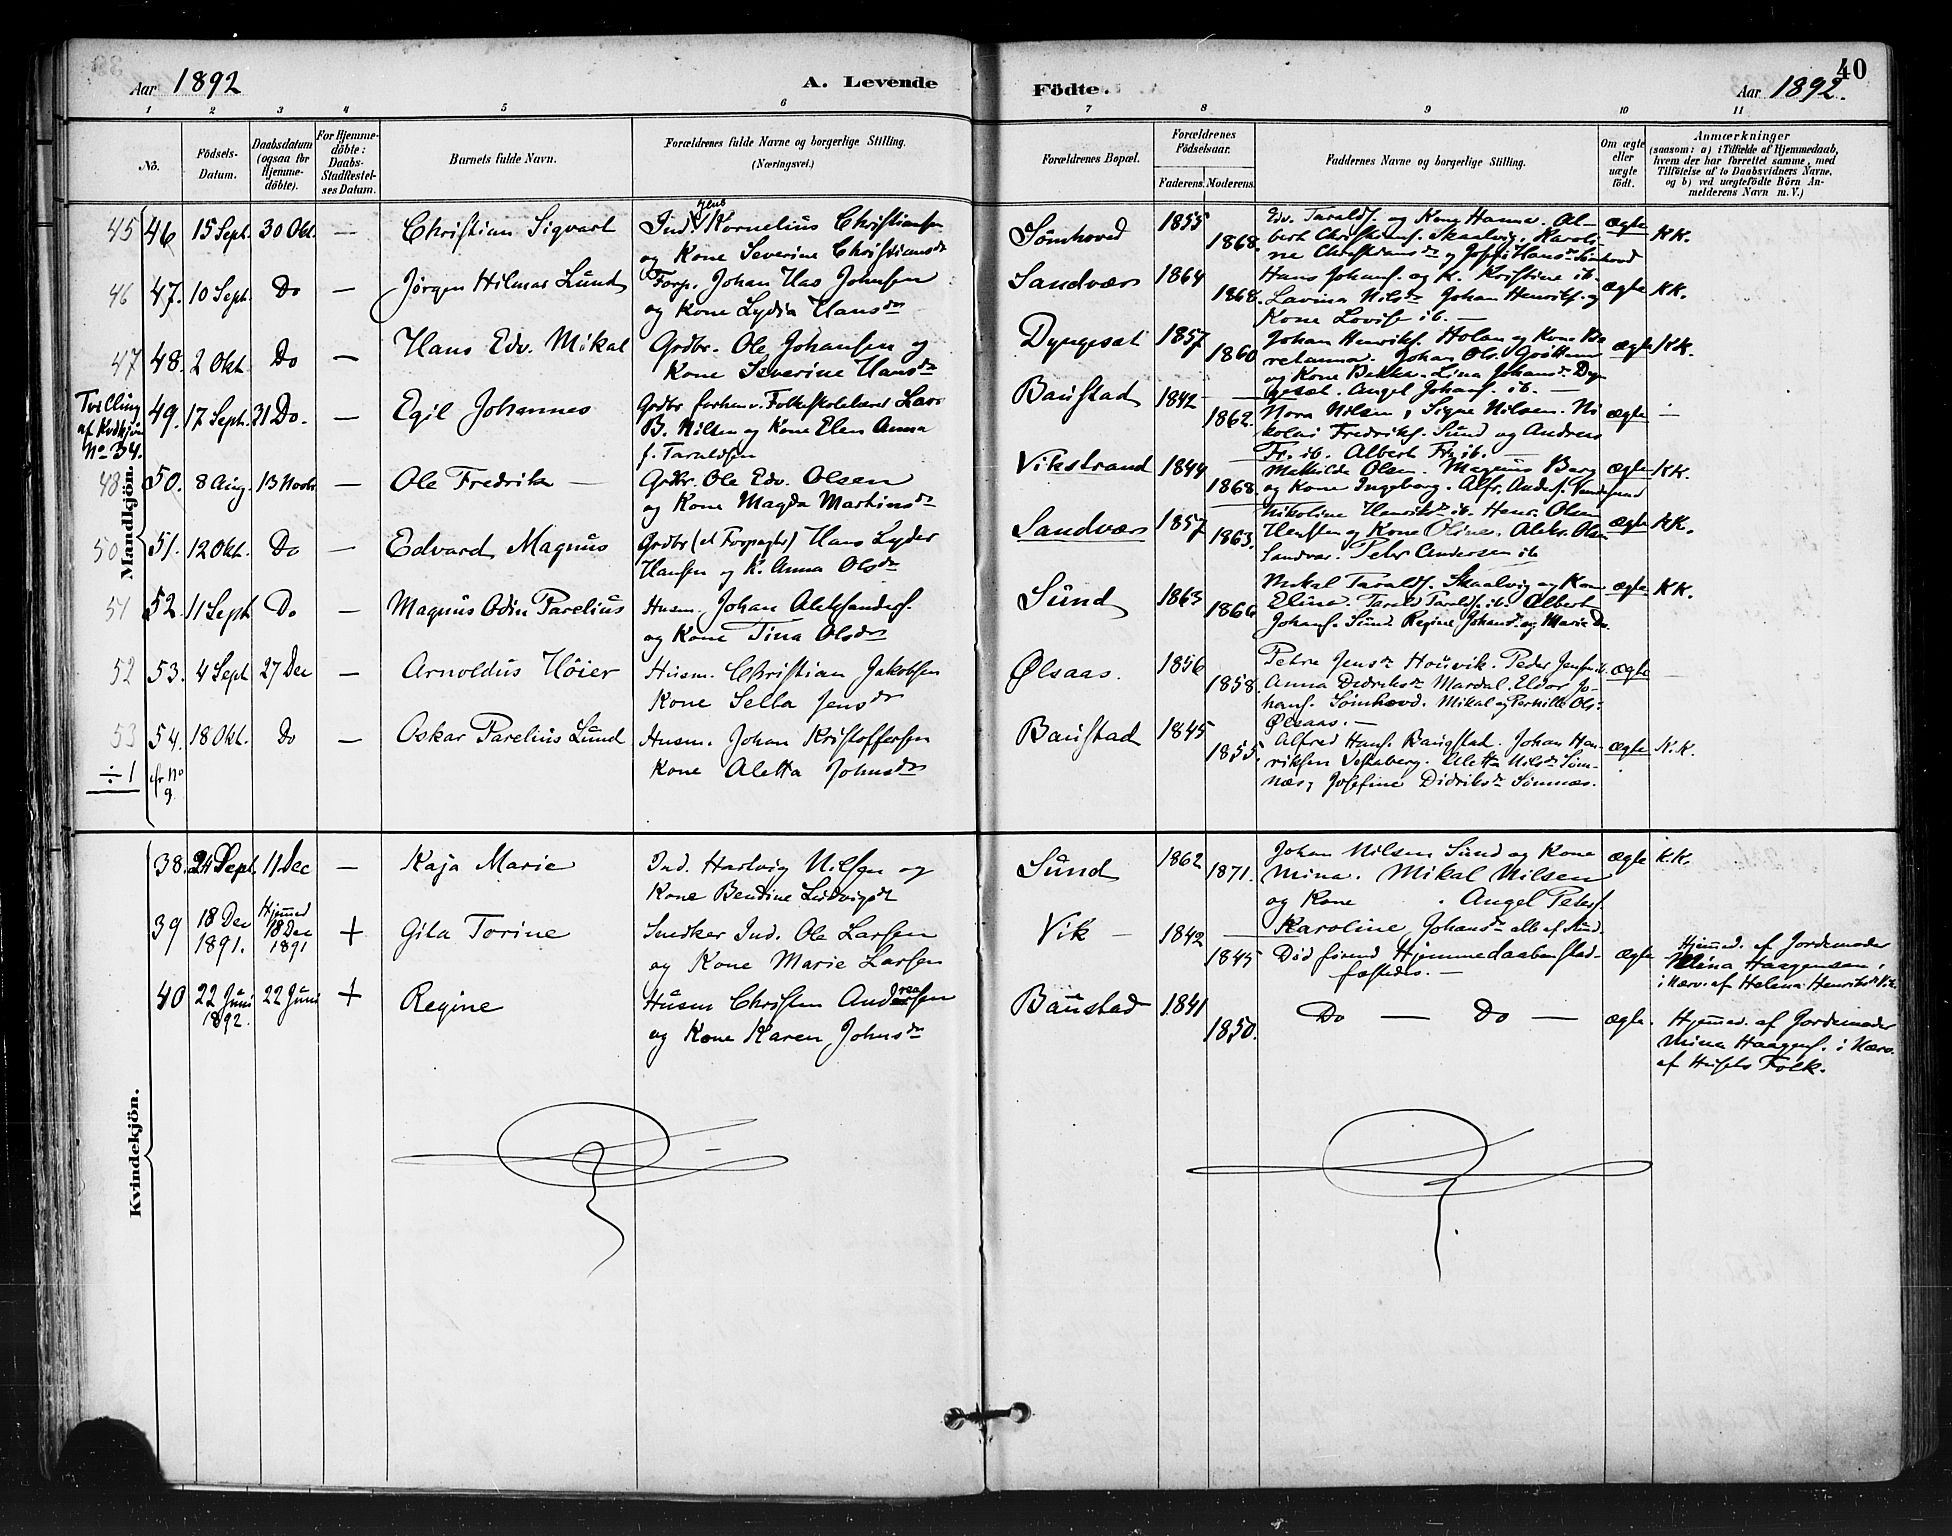 Aar 1892
A. Levende
Födte.
40
Aar 1892.
1 2 3 4 5 6 7 8 9 10 11
No.
Födsels-
Datum.
Daabsdatum
(ogsaa for
Hjemme-
döbte).
For Hjemme-
döbte:
Daabs-
Stadfæstel-
ses Datum.
Barnets fulde Navn.
Forældrenes fulde Navne og borgerlige Stilling.
(Næringsvei.)
Forældrenes Bopæl.
Forældrenes
Födselsaar.
Faderens. Moderens.
Faddernes Navne og borgerlige Stilling.
Om ægte
eller
uægte
födt.
Anmærkninger
(saasom: a) i Tilfælde af Hjemmedaab,
hvem der har forrettet samme, med
Tilföielse af to Daabsvidners Navne,
og b) ved uægtefödte Börn An-
melderens Navn m. V.)
Mandkjön.
45 46 15 Sept. 30 Okt. — Christian Sigvart
Ind. Jens Kornelius Christiansen
og Kone Severine Christiansdr
Sömhoved 1855 1868.
Edv. Taralds. og Kone Hanna. Al-
bert Christians. Skaalvig. Karoli-
ne Christiansdr og
ægte KK.
46 47. 10 Sept. Do — Jörgen Hilmar Lund
Forp. Johan Johnsen
og Kone Lydia Hansdr
Sandvær 1864 1868.
Hans Johans. og K. Kristine ib.
Lavina Nilsdr Johan Henriks. og
Kone Lovise ib. —
ægte KK.
47 48. 2 Okt. Do — Hans Edv. Mikal
Grdbr. Ole Johansen og
Kone Severine Hansdr
Dyngeset 1857 1860
Johan Henriks. Holan og Kone Be
retanna. Johan Ols. Gröttem
og Kone Bekka. Lina Johansdr Dyn
geset. Angel Johans. ib. —
ægte KK.
Tvilling
af Kvdkjön
No 34.
49. 17 Sept. 31 Do. — Egil Johannes
Grdbr forhenv. Folkeskolelærer Lars
B. Nilsen og Kone Elen Anna
f. Taraldsen
Baustad 1842 — 1862.
Nora Nilsen, Signe Nilsen. Ni
kolai Fredriks. Sund og Andreas
Fr. ib. Albert Fr. ib. —
ægte —
48 50. 8 Aug. 13 Novbr. — Ole Fredrik —
Grdbr. Ole Edv. Olsen
og Kone Magda Martinsdr
Vikstrand 1844 1868.
Mathilde Olsen. Magnus Berg
og Kone Ingeborg. Alfr. Anders.
ægte KK.
50 51. 12 Okt. Do — Edvard Magnus
Grdbr Hans Lyder
Hansen og K. Anna Olsdr
Sandvær 1857 1863.
Nikoline Henriksdr ib. Henr. Olsen
Hansen og Kone Oline. Aleks. Olsen
Sandvær. Peter Andersen ib
ægte KK.
51 52. 11 Sept Do — Magnus Odin Parelius
Husm. Johan Aleksanders.
og Kone Tina Olsdr
Sund 1863 1866
Mikal Taralds. Skaalvig og Kone
Eline. Tarald Taralds. ib. Albert
Johans. Sund Regine Johansdr og Marie Do.
ægte KK.
52 53. 4 Sept 27 Dec — Arnoldus Höier
Husm. Christian Jakobsen
Kone Sella Jensdr
Ølsaas. 1856 1858.
Petra Jensdr Houvik. Peder Jensen ib.
Anna Didriksdr Mardal. Eldor Jo-
hans. Sömhoved. Mikal og Pernille Ols.
Ølsaas. —
ægte —
53 54. 18 Okt. Do — Oskar Parelius Lund
Husm. Johan Kristoffersen
Kone Aletta Johnsdr
Baustad 1845 1855.
Alfred Hans. Baugstad. Johan Hen-
riksen Selsaberg. Aletta Nilsdr Söm-
næs, Josefine Didriksdr Sömnæs.
ægte N.K.
÷1
cfr No
9.
Kvindekjön.
38. 24 Sept. 11 Dec — Kaja Marie
Ind. Hartvig Nilsen og
Kone Bendine Ludvigsdr
Sund 1862 1871.
Johan Nilsen Sund og Kone
Mina. Mikal Nilsen
og Kone . Angel Peders.
Karoline Johansdr alle af Sund.
ægte K.K.
39 18 Dec
1891.
Hjemmed
18 Dec
1891
+ Gila Torine
Snedker Ind. Ole Larsen
og Kone Marie Larsen
Vik — 1842 1845
Död förend Hjemmedaaben stad-
fæstedes. —
ægte
Hjemmed. af Jordemoder
Mina Haagensen,
i Nærv. af Helena Henriksdr Vik.
40 22 Juni
1892.
22 Juni + Regine
Husm Christen Andreasen
og Kone Karen Johnsdr
Baustad 1841 1850.
Do — Do —
ægte.
Hjemmed. af Jordemoder
Mina Haagens. i Nærv.
af Husets Folk.